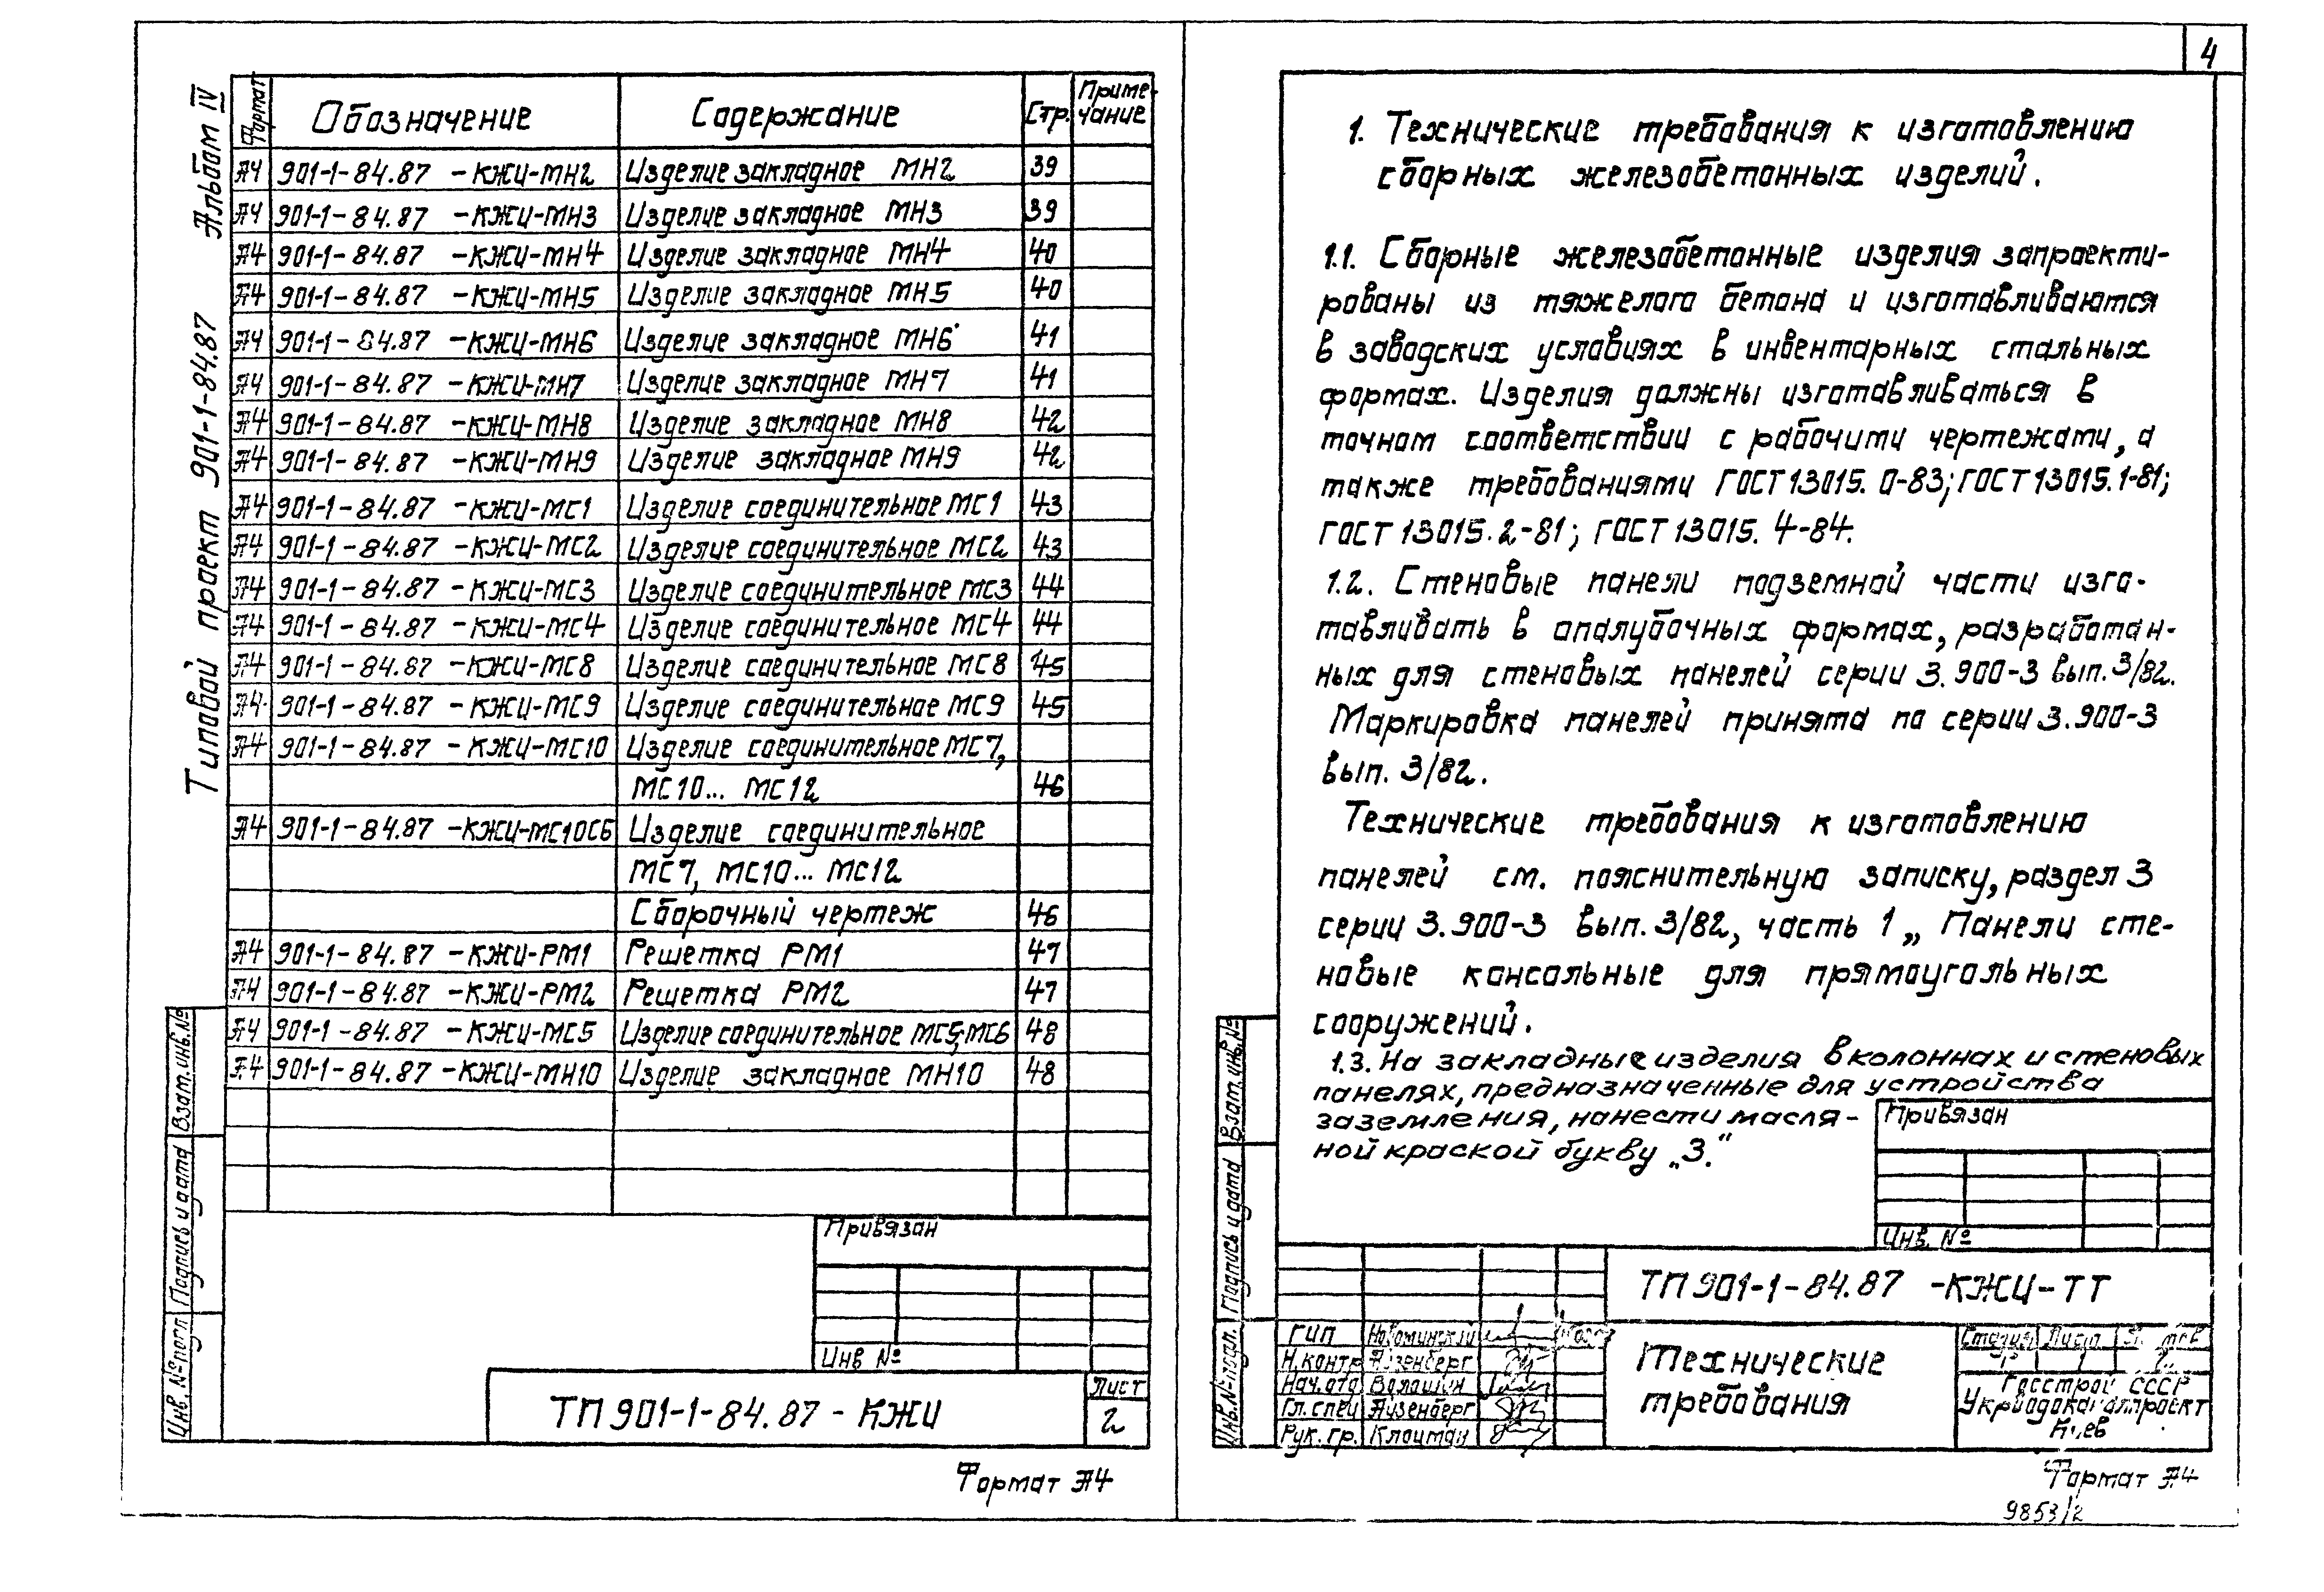 Типовой проект 901-1-84.87 Альбом IV
Формат Обозначение Содержание Стр. Приме-
чание
А4 901-1-84.87 -КЖИ-МН2 Изделие закладное МН2 39
А4 901-1-84.87 -КЖИ-МН3 Изделие закладное МН3 39
А4 901-1-84.87 -КЖИ-МН4 Изделие закладное МН4 40
А4 901-1-84.87 -КЖИ-МН5 Изделие закладное МН5 40
А4 901-1-84.87 -КЖИ-МН6 Изделие закладное МН6 41
А4 901-1-84.87 -КЖИ-МН7 Изделие закладное МН7 41
А4 901-1-84.87 -КЖИ-МН8 Изделие закладное МН8 42
А4 901-1-84.87 -КЖИ-МН9 Изделие закладное МН9 42
А4 901-1-84.87 -КЖИ-МС1 Изделие соединительное МС1 43
А4 901-1-84.87 -КЖИ-МС2 Изделие соединительное МС2 43
А4 901-1-84.87 -КЖИ-МС3 Изделие соединительное МС3 44
А4 901-1-84.87 -КЖИ-МС4 Изделие соединительное МС4 44
А4 901-1-84.87 -КЖИ-МС8 Изделие соединительное МС8 45
А4 901-1-84.87 -КЖИ-МС9 Изделие соединительное МС9 45
А4 901-1-84.87 -КЖИ-МС10 Изделие соединительное МС7,
МС10... МС12 46
А4 901-1-84.87 -КЖИ-МС10СБ Изделие соединительное
МС7, МС10... МС12
Сборочный чертеж 46
А4 901-1-84.87 -КЖИ-РМ1 Решетка РМ1 47
А4 901-1-84.87 -КЖИ-РМ2 Решетка РМ2 47
А4 901-1-84.87 -КЖИ-МС5 Изделие соединительное МС5; МС6 48
А4 901-1-84.87 -КЖИ-МН10 Изделие закладное МН10 48
Привязан
Инв №
Взам. инв. №
Подпись и дата
Инв. № подл
ТП 901-1-84.87 - КЖИ
Лист
2
Формат А4
4
1. Технические требования к изготовлению
сборных железобетонных изделий.
1.1. Сборные железобетонные изделия запроекти-
рованы из тяжелого бетона и изготавливаются
в заводских условиях в инвентарных стальных
формах. Изделия должны изготавливаться в
точном соответствии с рабочими чертежами, а
также требованиями ГОСТ 13015.0-83; ГОСТ 13015.1-81;
ГОСТ 13015.2-81; ГОСТ 13015.4-84.
1.2. Стеновые панели подземной части изго-
тавливать в опалубочных формах, разработан-
ных для стеновых панелей серии 3.900-3 вып. 3/82.
Маркировка панелей принята по серии 3.900-3
вып. 3/82.
Технические требования к изготовлению
панелей см. пояснительную записку, раздел 3
серии 3.900-3 вып. 3/82, часть 1 „Панели сте-
новые консольные для прямоугольных
сооружений.
1.3. На закладные изделия в колоннах и стеновых
панелях, предназначенные для устройства
заземления, нанести масля-
ной краской букву „З."
Привязан
Инв. №
Взам. инв. №
Подпись и дата
Инв. № подл.
ТП 901-1-84.87 -КЖИ-ТТ
ГИП Новоминский
Н.контр Айзенберг
Нач.отд Волошин
Гл. спец Айзенберг
Рук. гр. Клоцман
Технические
требования
Стадия Лист
1
Госстрой СССР
Укрводоканалпроект
Киев
Формат А4
9853/2